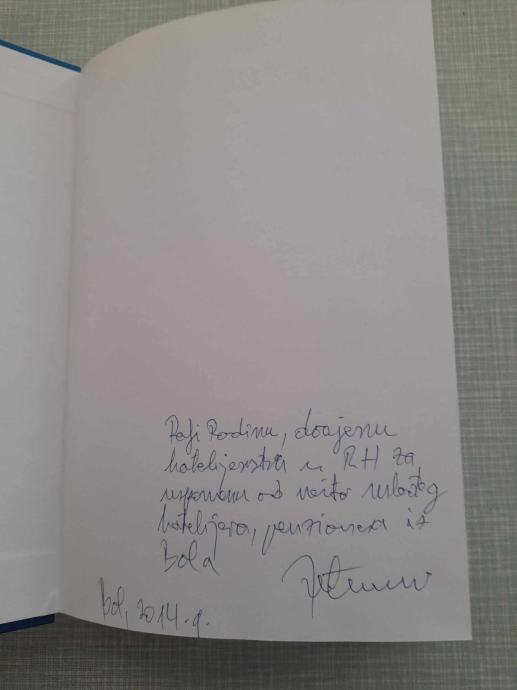 Rafi Rodinu, doajenu
hotelijerstva u RH za
uspomenu od nešto mlađeg
hotelijera, penzionera iz
Bola
Bol, 2014.g.